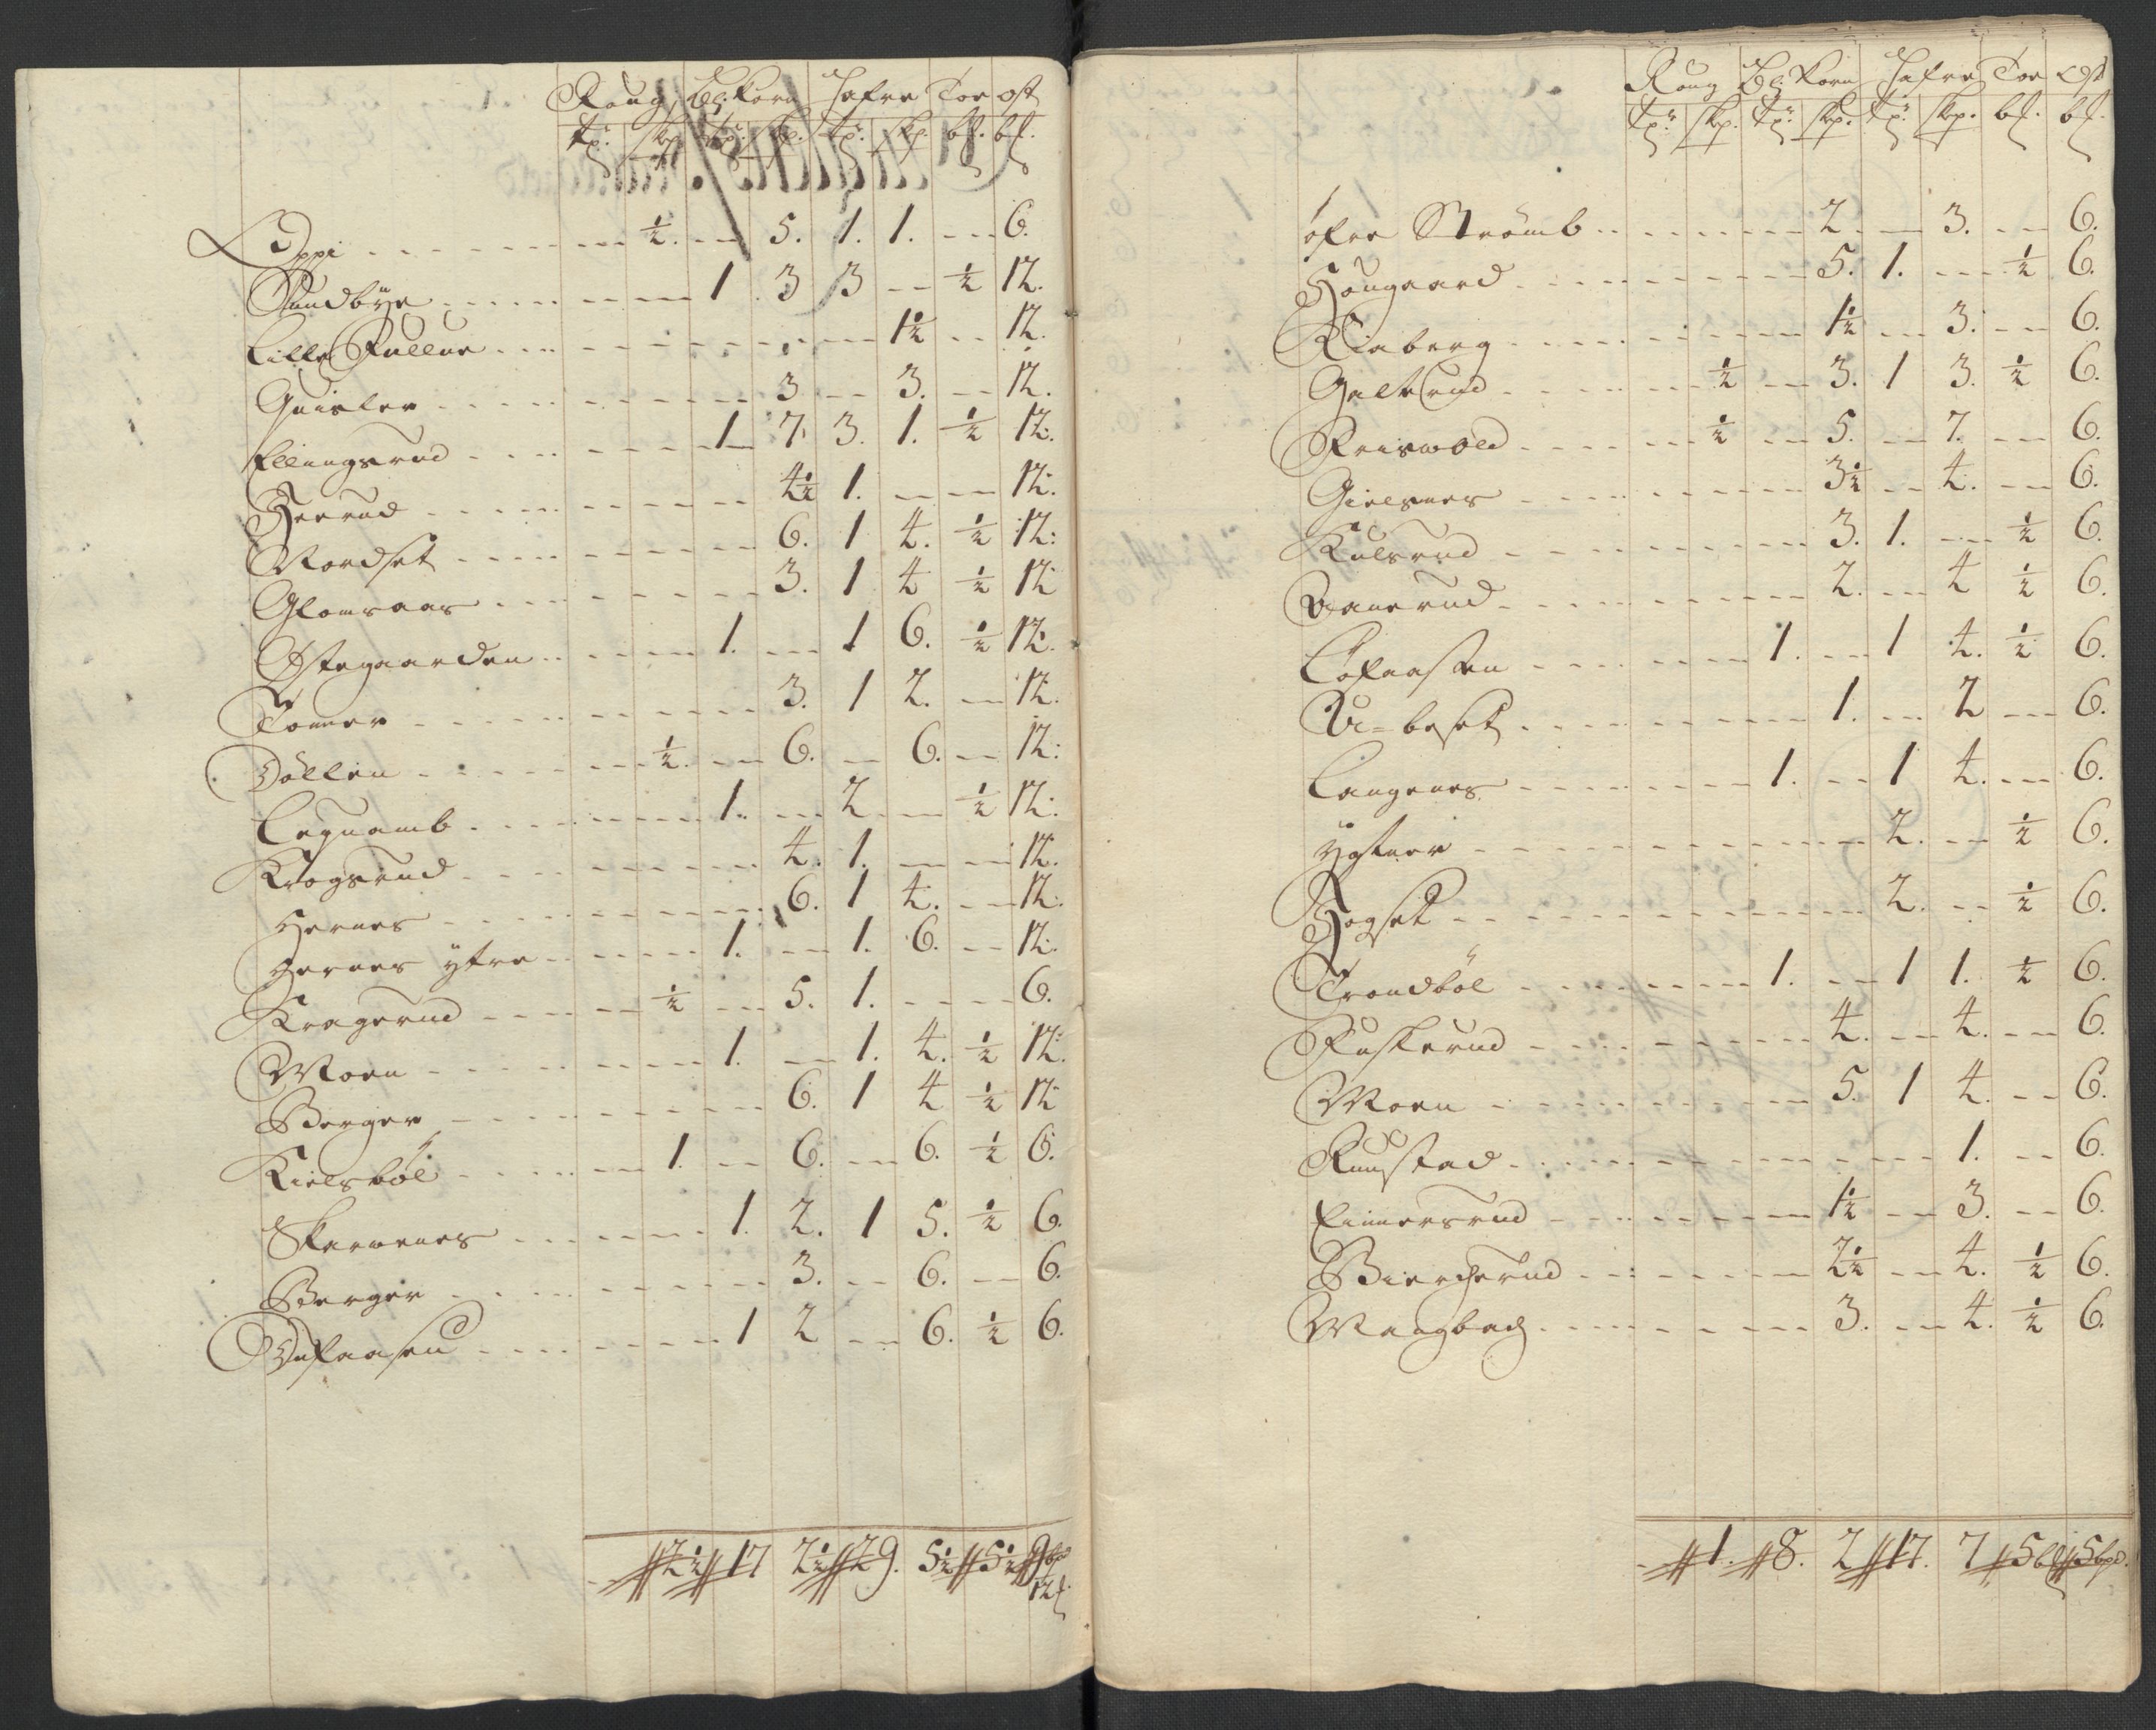 Roug Bl: Korn Hafre Toe ost
tpr: skp. tpr: skp. tpr: skp. bl. bl.
Oppi . . . ½. 5. 1. 1. 6.
Sundbÿe . . . 1 3 3 ½ 12.
Lille Fullue . . . 1½ 12.
Quisler . . . 3 3. 12.
Ellingsrud . . . 1 7. 3. 1. ½ 12.
Heerud . . . 4½ 1. 12.
Nordset . . . 6. 1 4. ½ 12:
Glomsaas . . . 3. 1 4 ½ 12
Østegaarden . . . 1. 1 6. ½ 12.
Tomer . . . 3. 1 2. 12.
Döllen . . . ½. 6. 6. 12:
Legnamb . . . 1. 2 ½ 12:
Krogsrud . . . 4. 1. 12.
Hernes . . . 6. 1 4. 12.
Hernes ytre . . . 1. 1. 6. 12.
Kragerud . . . ½ 5. 1. 6.
Moen . . . 1. 1. 4. ½ 12.
Berger . . . 6. 1 4 ½ 12
Kielsböl . . . 1. 6. 6. ½ 6.
Skarnenes . . . 1. 2. 1 5. ½ 6.
Berger . . . 3. 6. 6.
. . . 1 2 6. ½ 6.
2½ 17 2½ 29. 5½ 5½ 9bpd
12
Roug Bl: Korn Hafre Toe Ost
tpr: skp. tpr: skp. tpr: skp. bl. bl.
öfre Strömb . . . 2. 3. 6.
Hougaard . . . 5. 1. ½ 6.
Kiaberg . . . 1½ 3. 6.
Galterud . . . ½ 3. 1 3. ½ 6.
Friswold . . . ½ 5. 7. 6.
Gielsnes . . . 3½ 4. 6.
Kulsrud . . . 3. 1. ½ 6.
Aanerud . . . 2. 4 ½ 6.
Löfaasen . . . 1. 1 4. ½ 6.
U=beset . . . 1. 2 6.
Langenes . . . 1. 1 4. 6.
. . . 2. ½ 6.
Hogset . . . 2. ½ 6.
Trondböl . . . 1. 1 1. ½ 6.
Fuskerud . . . 4. 4. 6.
Moen . . . 5. 1 4. 6.
Runstad . . . 1. 6.
Einersrud . . . 1½ 3. 6.
Biercherud . . . 2½ 4. ½ 6.
Mangbach . . . 3. 4. ½ 6.
1. 8. 2 17. 7 5bl 5bpd.